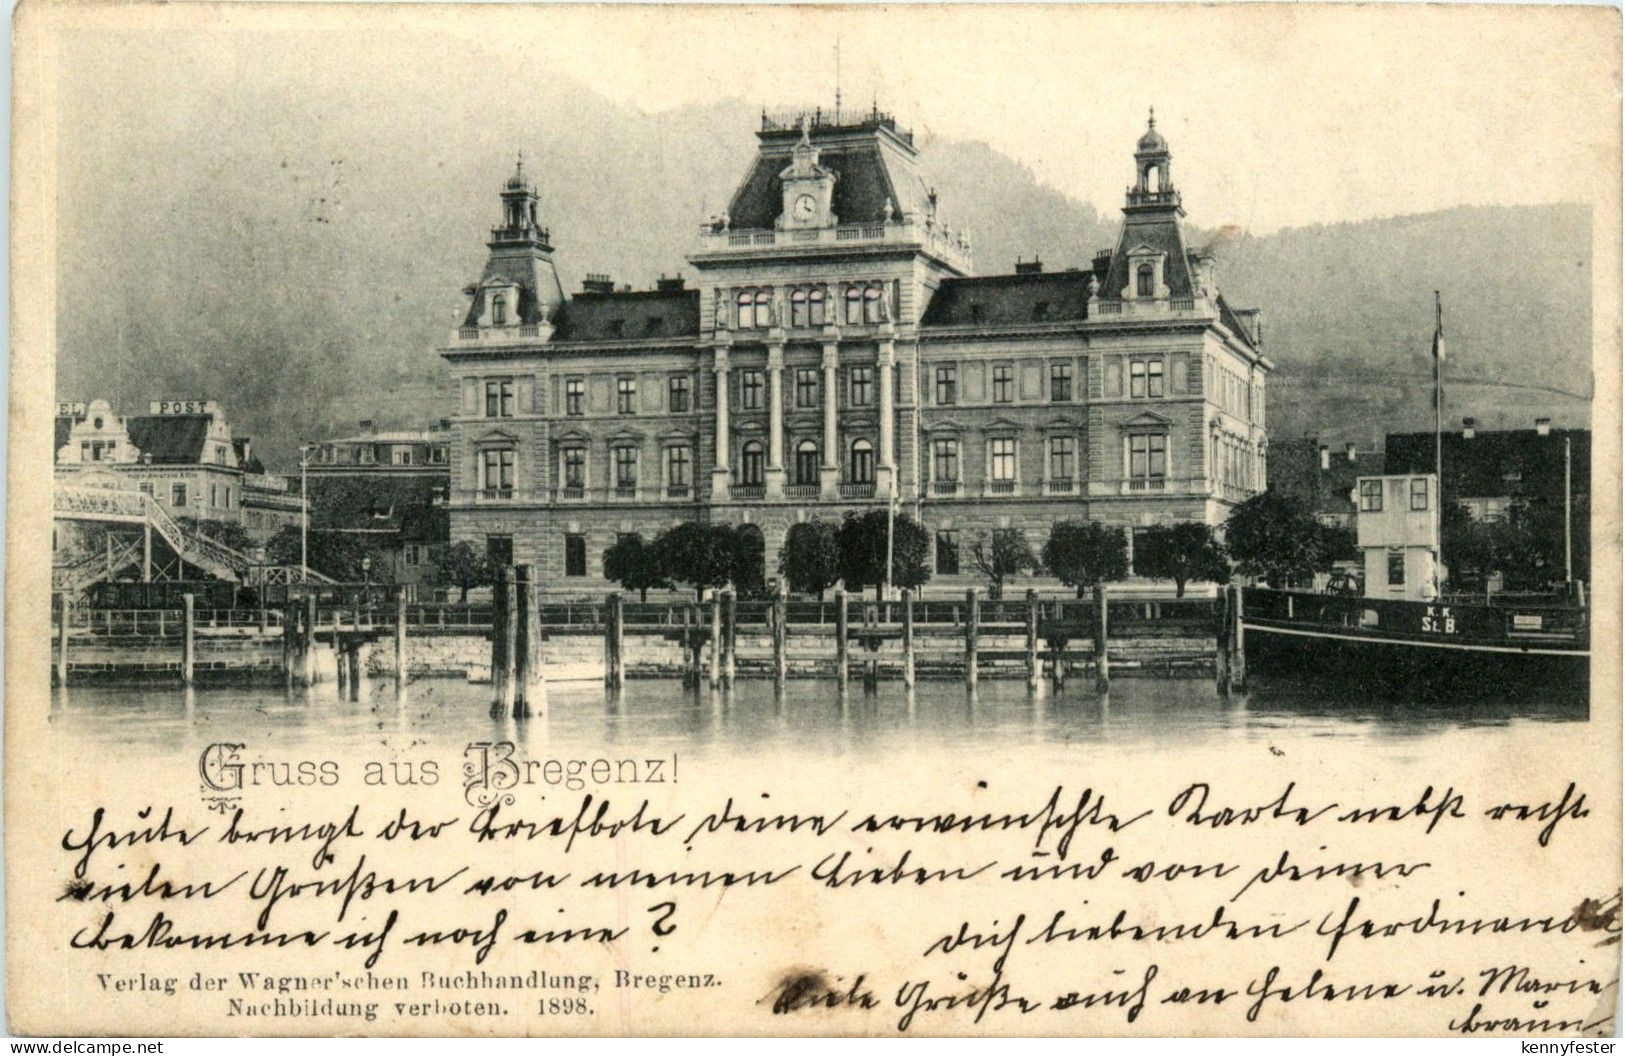 EL POST
K.K.
St.B.
Gruss aus Bregenz!
Heute bringt der Briefbote Deine erwünschte Karte nebst recht
vielen Grüßen von meinen Lieben und von Deiner
bekomme ich noch eine? Dich liebenden Ferdinanda
Viele Grüße auch an Helene u. Marie
Braun.
Verlag der Wagner'schen Buchhandlung, Bregenz.
Nachbildung verboten. 1898.
delcampe.net
kennyfester